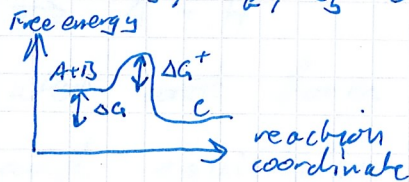 Free energy
A+B
ΔG⁺
ΔG
C
reaction
coordinate